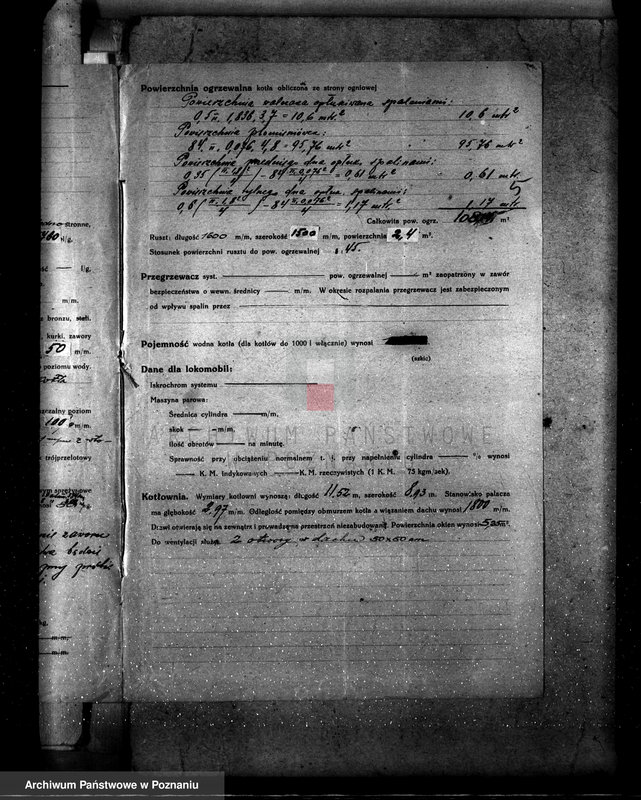 Powierzchnia ogrzewalna kotła obliczona ze strony ogniowej
Powierzchnia walczaka opłukiwana spalinami:
0,5 π. 1,836. 3,7 = 10,6 mtr² 10,6 mtr²
Powierzchnia płomieniówek:
84 π. 0,076. 4,8 = 95,76 mtr² " 95.76 mtr²
Powierzchnia przedniego dna opłuk. spalinami:
= 0,61 mtr² " 0,61 mtr²
Powierzchnia tylnego dna opłuk. spalinami:
= 1,17 mtr² " 1.17 mtr
Całkowita pow. ogrz. m²
Ruszt: długość 1600 m/m, szerokość 1500 m/m, powierzchnia 2,4 m².
Stosunek powierzchni rusztu do pow. ogrzewalnej 1:45.
Przegrzewacz syst. pow. ogrzewalnej m² zaopatrzony w zawór
bezpieczeństwa o wewn. średnicy m/m. W okresie rozpalania przegrzewacz jest zabezpieczonym
od wpływu spalin przez
Pojemność wodna kotła (dla kotłów do 1000 l włącznie) wynosi
(szkic)
Dane dla lokomobil:
Iskrochrom systemu
Maszyna parowa:
Średnica cylindra m/m,
skok m/m.
Ilość obrotów na minutę.
ARCHIWUM PAŃSTWOWE
Sprawność przy obciążeniu normalnem t. j. przy napełnieniu cylindra % wynosi
K. M. indykowanych K. M. rzeczywistych (1 K. M. 75 kgm/sek).
Kotłownia. Wymiary kotłowni wynoszą: długość 11,50 m, szerokość 8,93 m. Stanowisko palacza
ma głębokość 2,97 m/m. Odległość pomiędzy obmurzem kotła a wiązaniem dachu wynosi 1800 m/m.
Drzwi otwierają się na zewnątrz i prowadzą na przestrzeń niezabudowaną. Powierzchnia okien wynosi
Do wentylacji służą 2 otwory w dachu 50x50 cm
stronne,
t/g.
l/g.
m/m.
z bronzu, stali.
kurki, zawory
50 m/m.
poziomu wody.
poziom
100 m/m.
trójprzelotowy
zaworu
m/m.
m/m.
Archiwum Państwowe w Poznaniu